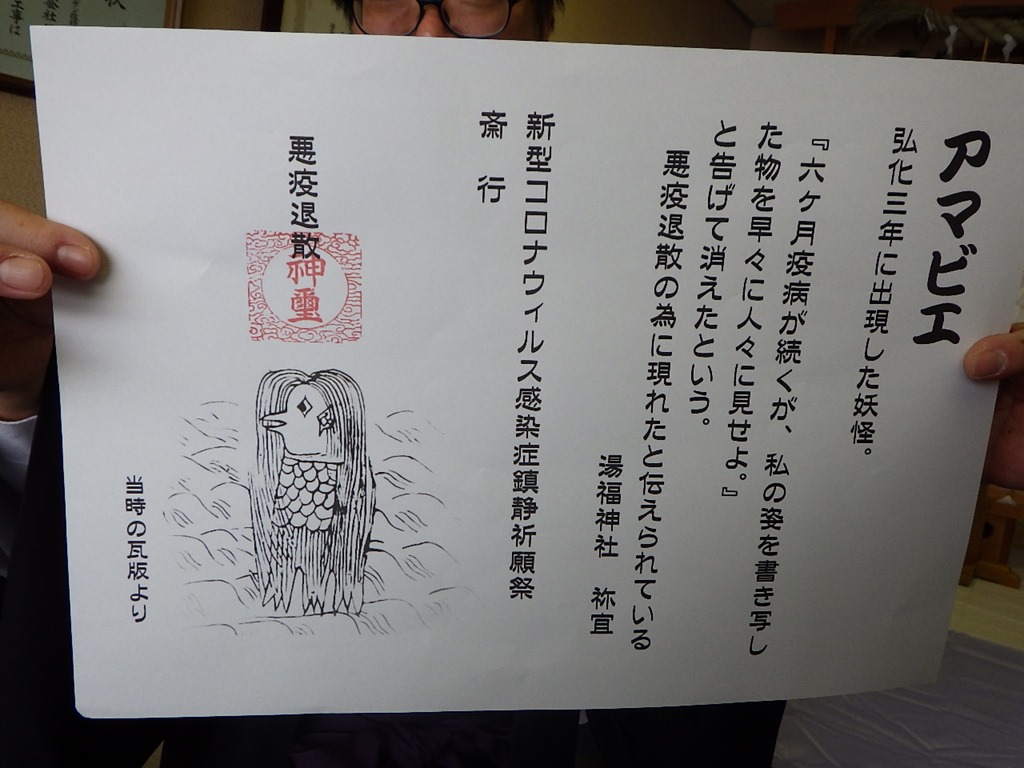 アマビエ
弘化三年に出現した妖怪。
『六ケ月疫病が続くが、私の姿を書き写し
た物を早々に人々に見せよ。』
と告げて消えたという。
悪疫退散の為に現れたと伝えられている
湯福神社 祢宜
新型コロナウィルス感染症鎮静祈願祭
斎行
悪疫退散
神璽
当時の瓦版より